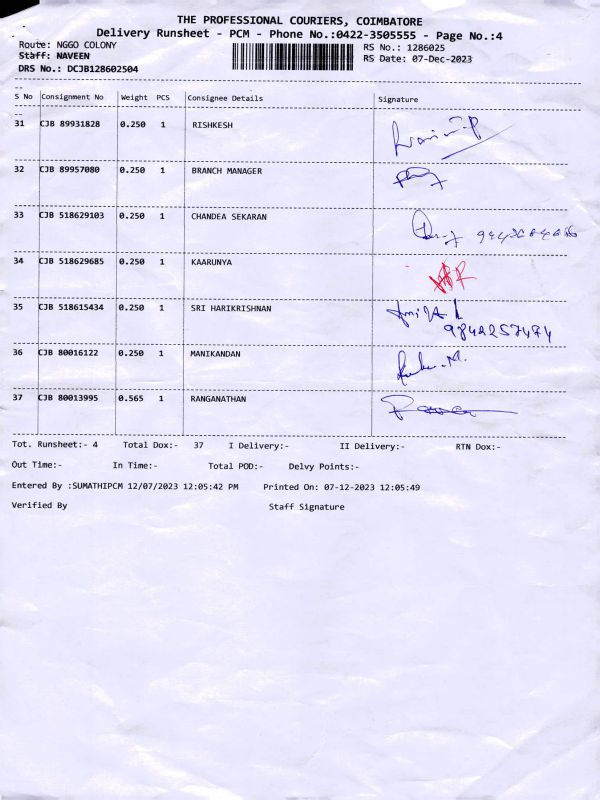 THE PROFESSIONAL COURIERS, COIMBATORE
Delivery Runsheet - PCM - Phone No.:0422-3505555 - Page No.:4
Route: NGGO COLONY RS No.: 1286025
Staff: NAVEEN RS Date: 07-Dec-2023
DRS No.: DCJB128602504
S No Consignment No Weight PCS Consignee Details Signature
31 CJB 89931828 0.250 1 RISHKESH
32 CJB 89957080 0.250 1 BRANCH MANAGER
33 CJB 518629103 0.250 1 CHANDEA SEKARAN
34 CJB 518629685 0.250 1 KAARUNYA
35 CJB 518615434 0.250 1 SRI HARIKRISHNAN
9842257474
36 CJB 80016122 0.250 1 MANIKANDAN
37 CJB 80013995 0.565 1 RANGANATHAN
Tot. Runsheet:- 4 Total Dox:- 37 I Delivery:- II Delivery:- RTN Dox:-
Out Time:- In Time:- Total POD:- Delvy Points:-
Entered By :SUMATHIPCM 12/07/2023 12:05:42 PM Printed On: 07-12-2023 12:05:49
Verified By Staff Signature